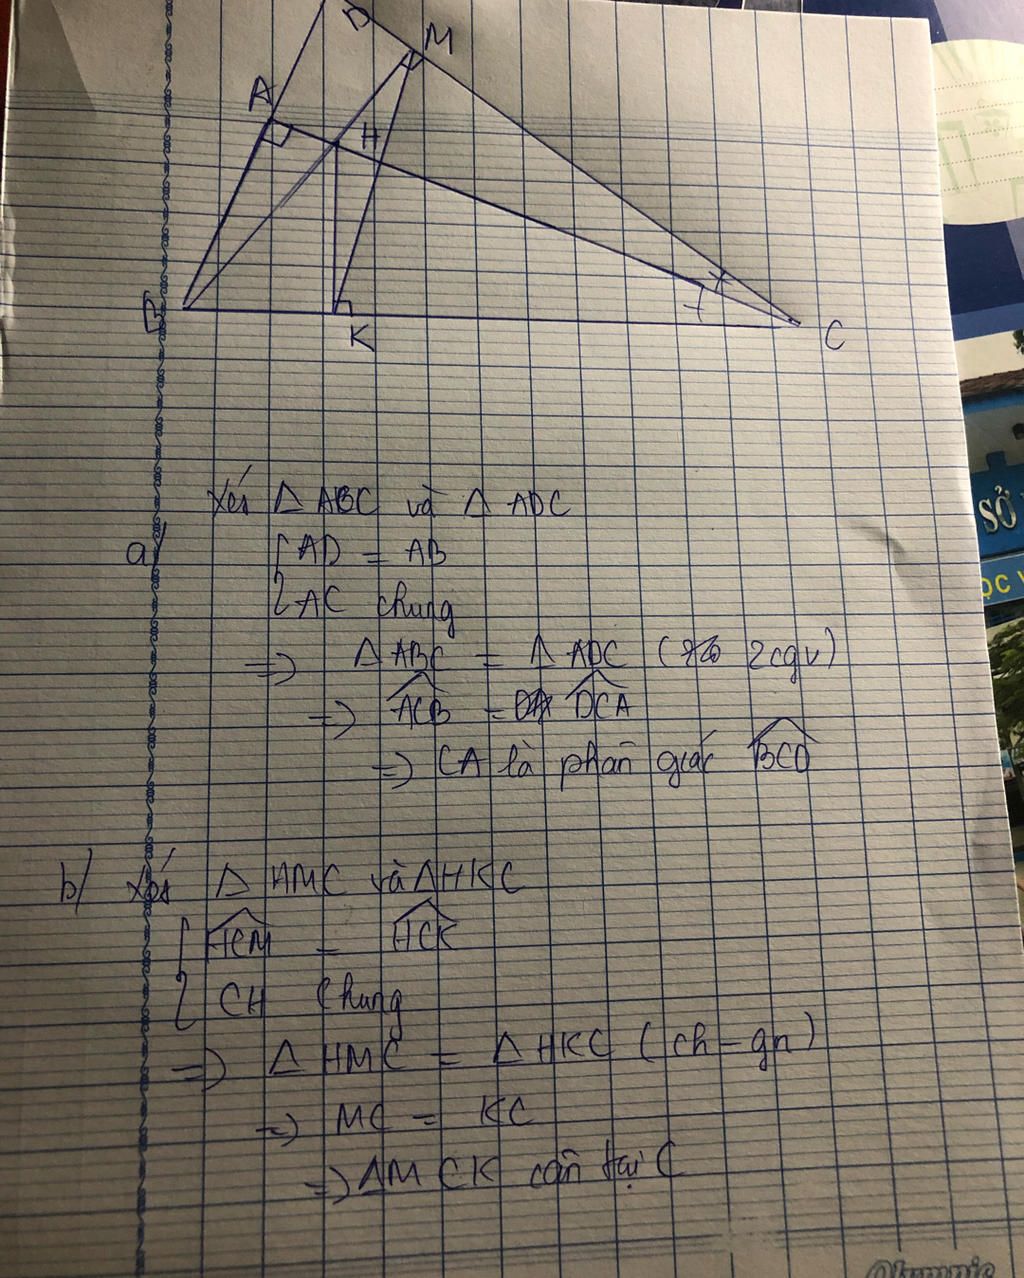 D
M
A
H
B
K
C
Xét Δ ABC và Δ ADC
a/
AD = AB
AC chung
=> Δ ABC = Δ ADC ( 2cgv)
=> ACB = DCA
=> CA là phân giác BCD
b/ Xét Δ HMC và Δ HKC
HCM = HCK
CH chung
=> Δ HMC = Δ HKC ( ch - gn )
=> MC = KC
=> Δ MCK cân tại C
SỞ
ỌC V